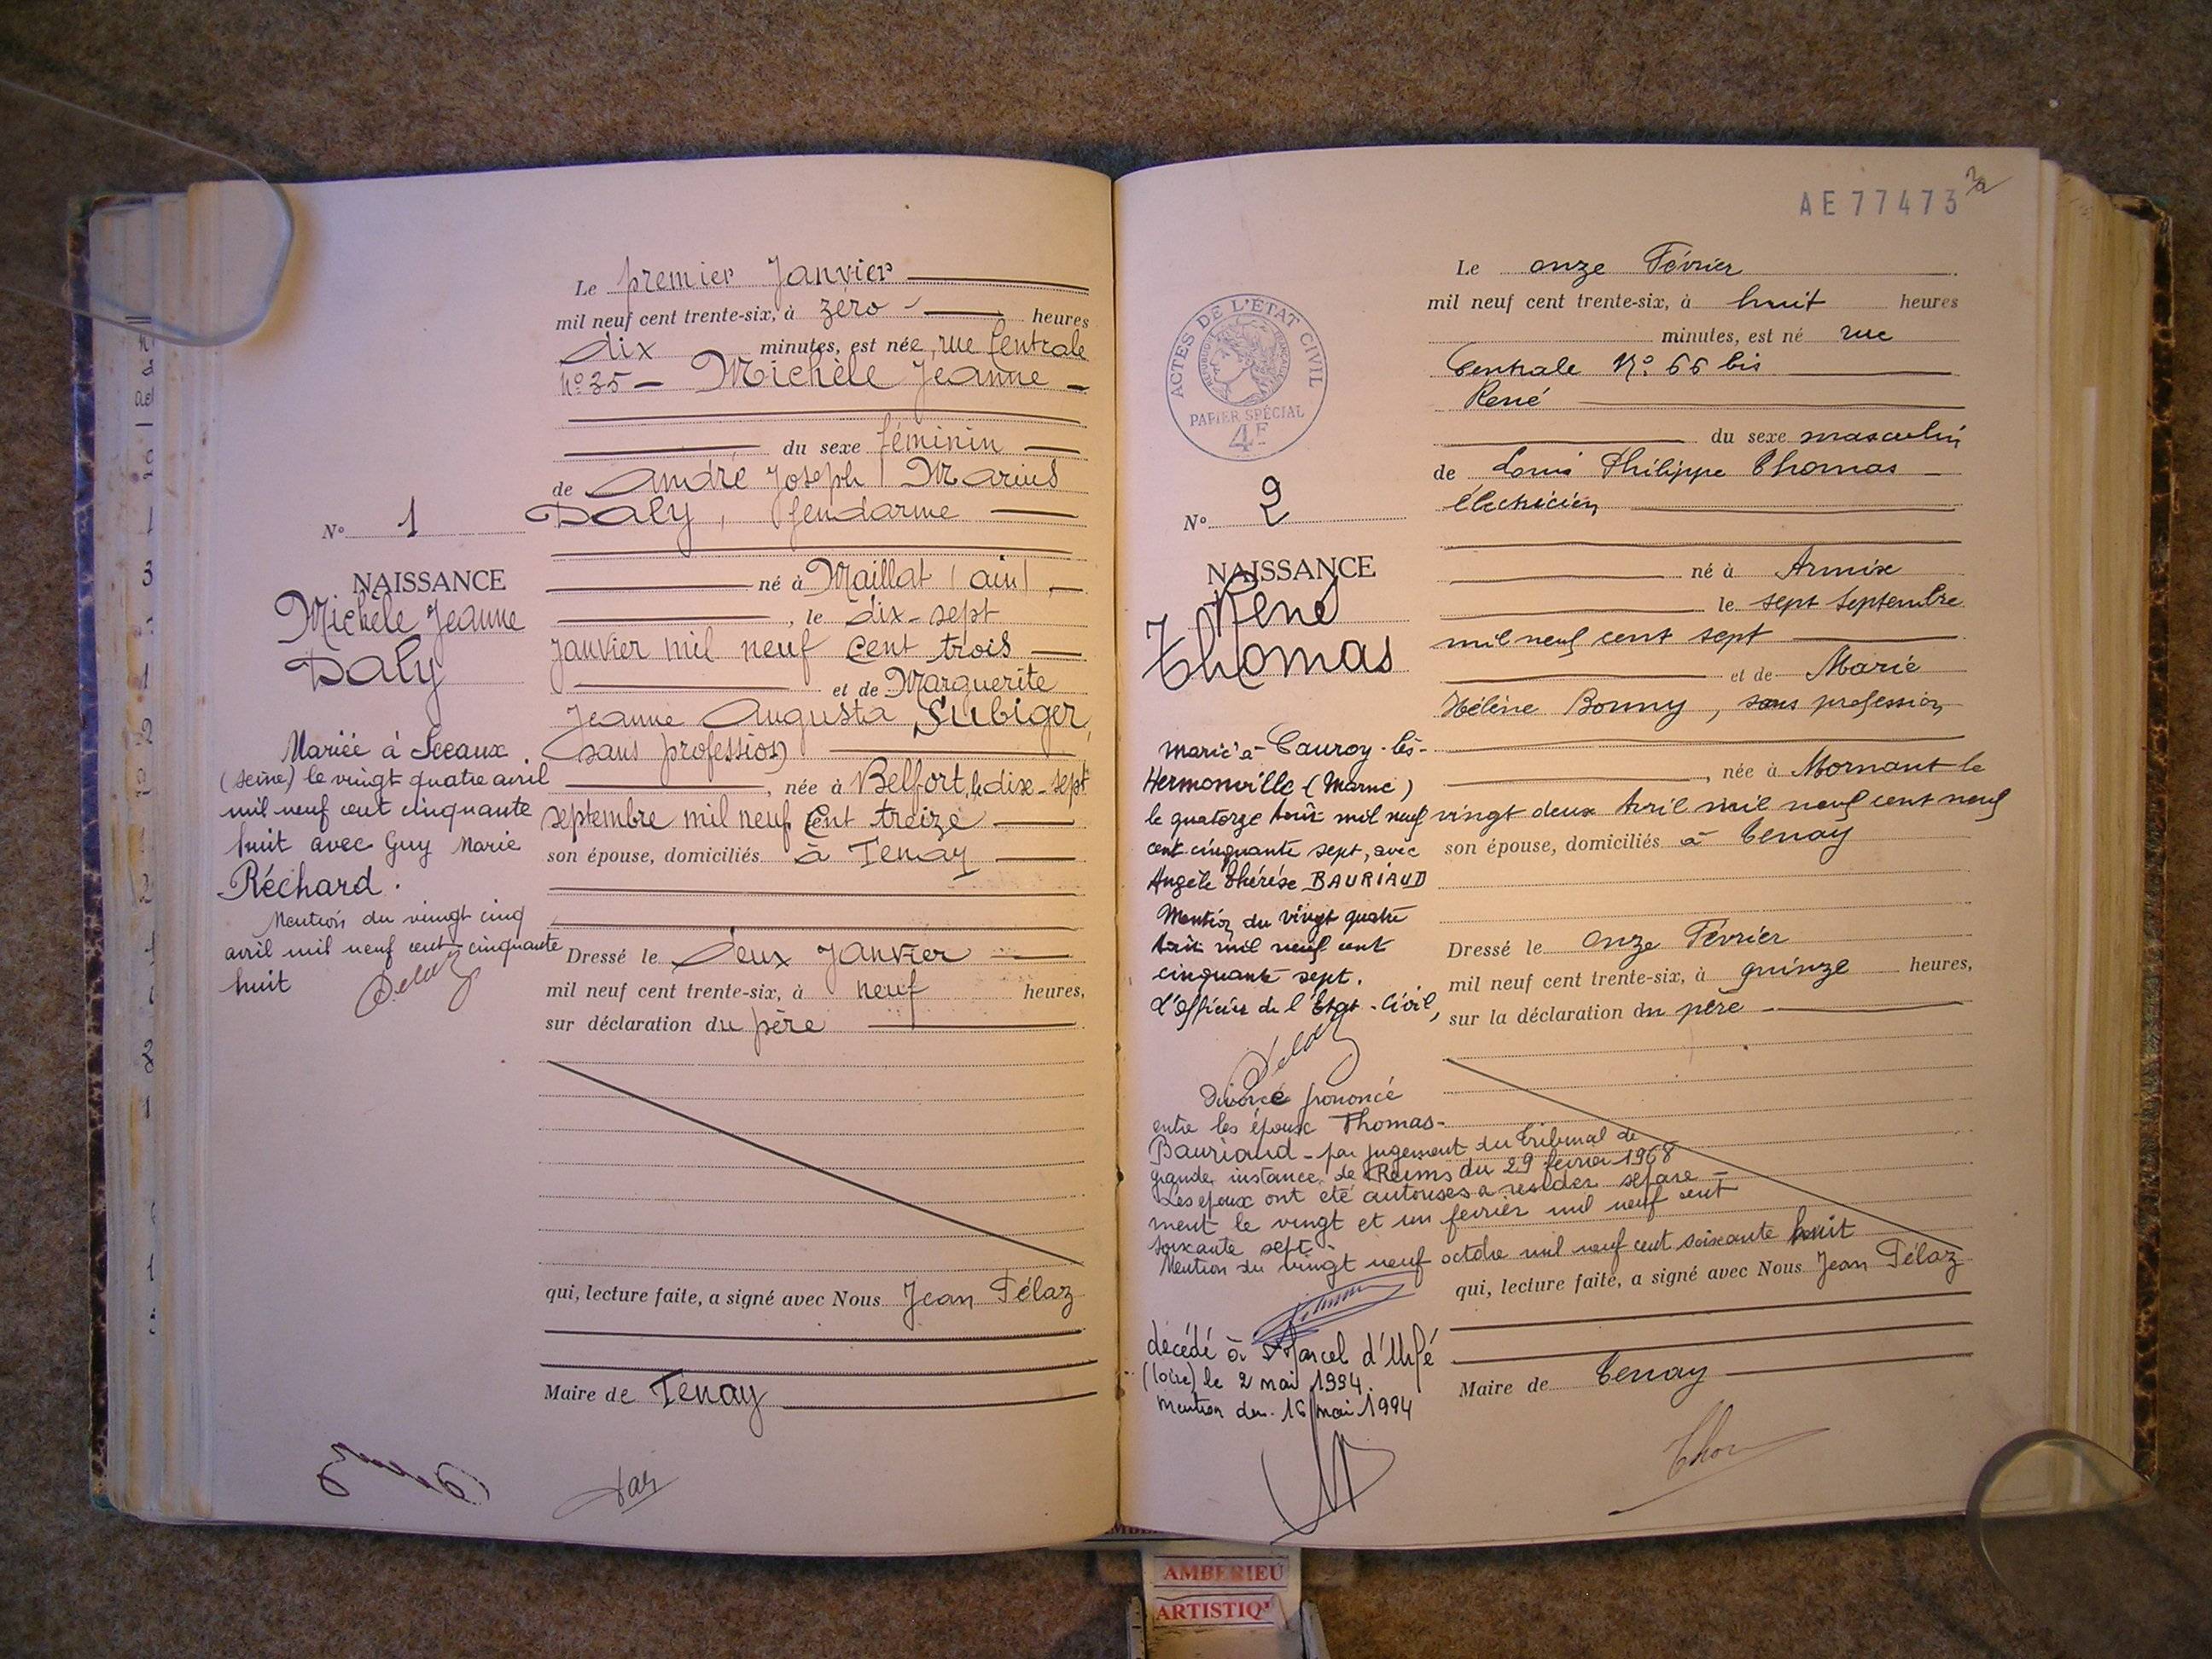 Le premier Janvier
mil neuf cent trente-six, à zéro heures
dix minutes, est née, rue Centrale
N° 35 - Michèle Jeanne
du sexe féminin
de André Joseph Marius
Daly, gendarme
né à Maillat (ain),
, le dix-sept
janvier mil neuf cent trois
et de Marguerite
Jeanne Augusta Subiger,
sans profession
, née à Belfort, le dix-sept
septembre mil neuf cent treize
son épouse, domiciliés à Tenay
Dressé le deux Janvier
mil neuf cent trente-six, à neuf heures,
sur déclaration du père
qui, lecture faite, a signé avec Nous Jean Pélaz
Maire de Tenay
N° 1
NAISSANCE
Michèle Jeanne
Daly
Mariée à Sceaux
(seine) le vingt quatre avril
mil neuf cent cinquante
huit avec Guy Marie
Réchard.
Mention du vingt cinq
avril mil neuf cent cinquante
huit
AE77473
Le onze Février
mil neuf cent trente-six, à huit heures
minutes, est né rue
Centrale N° 66 bis
René
du sexe masculin
de Louis Philippe Thomas
électricien
né à Armix
le sept Septembre
mil neuf cent sept
et de Marie
Hélène Bonny, sans profession
, née à Mornant le
vingt deux Avril mil neuf cent neuf
son épouse, domiciliés à Tenay
Dressé le onze Février
mil neuf cent trente-six, à quinze heures,
sur la déclaration du père
qui, lecture faite, a signé avec Nous Jean Pélaz
Maire de Tenay
ACTES DE L'ÉTAT CIVIL
RÉPUBLIQUE FRANÇAISE
PAPIER SPÉCIAL
4F
N° 2
NAISSANCE
René
Thomas
Marié à Cauroy-lès-
Hermonville (Marne)
le quatorze Août mil neuf
cent cinquante sept, avec
Angèle Thérèse BAURIAUD
Mention du vingt quatre
Août mil neuf cent
cinquante sept.
L'Officier de l'Etat-Civil,
Divorce prononcé
entre les époux Thomas-
Bauriaud - par jugement du Tribunal de
grande instance de Reims du 29 février 1968
Les epoux ont été autorisés a resider séparé-
ment le vingt et un fevrier mil neuf cent
soixante sept -
Mention du vingt neuf octobre mil neuf cent soixante huit
décédé à St Marcel d'Urfé
(loire) le 2 mai 1994.
mention du 16 mai 1994
AMBERIEU
ARTISTIQ'